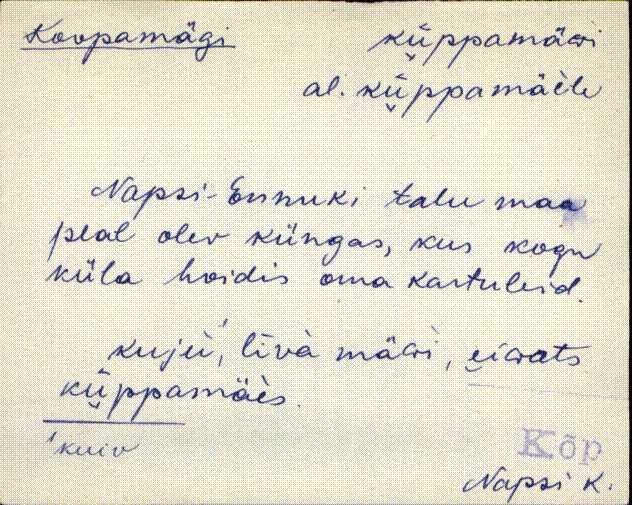 Koopamägi küppamäwi
al. küppamäèle
Napsi-Ennuki talu maa
peal olev küngas, kus kogu
küla hoidis oma kartuleid.
kuju¹, livà mäwi,
küppamäès.
¹kuiv
Kõp
Napsi K.